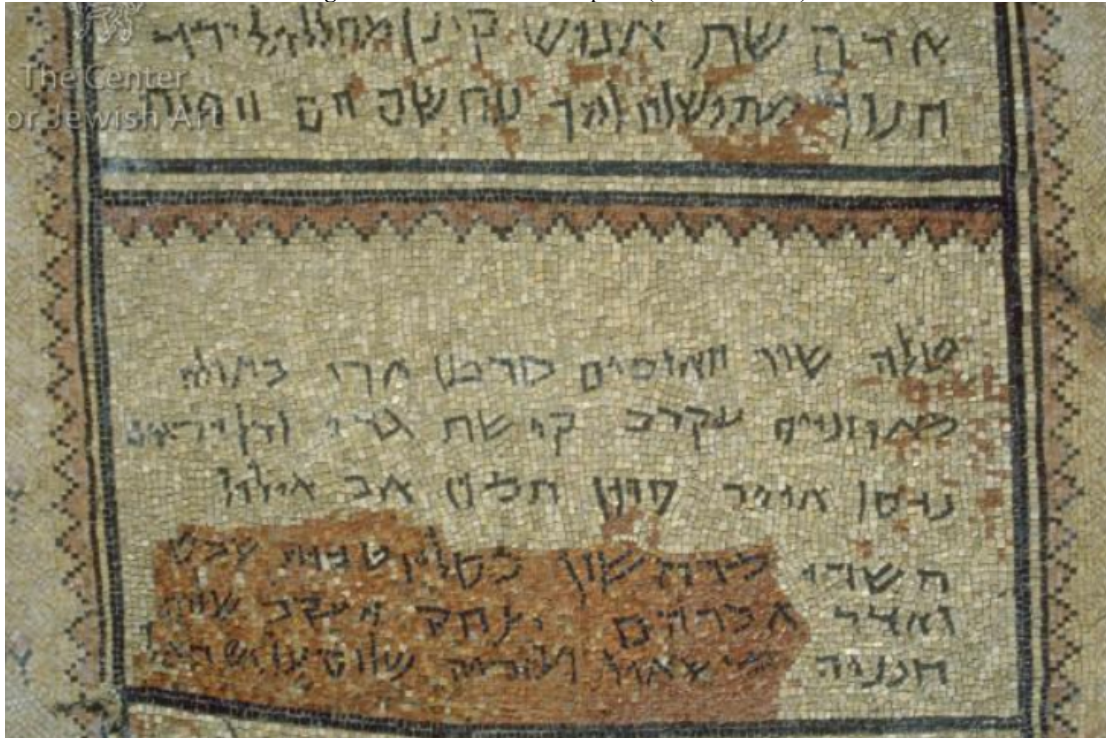 The Center
or Jewish Art
אדם שת אנוש קינן מהללאל ירד
חנוך מתושלח למך נח שם חם ויפת
טלה שור תאומים סרטן ארי בתולה
מאוזניים עקרב קשת גדי ודלי דגים
ניסן אייר סיון תמוז אב אילול
תשרי מרחשון כסליו טבית שבט
ואדר אברהם יצחק יעקב שלום
חנניה מישאיל ועזריה שלום על ישראל